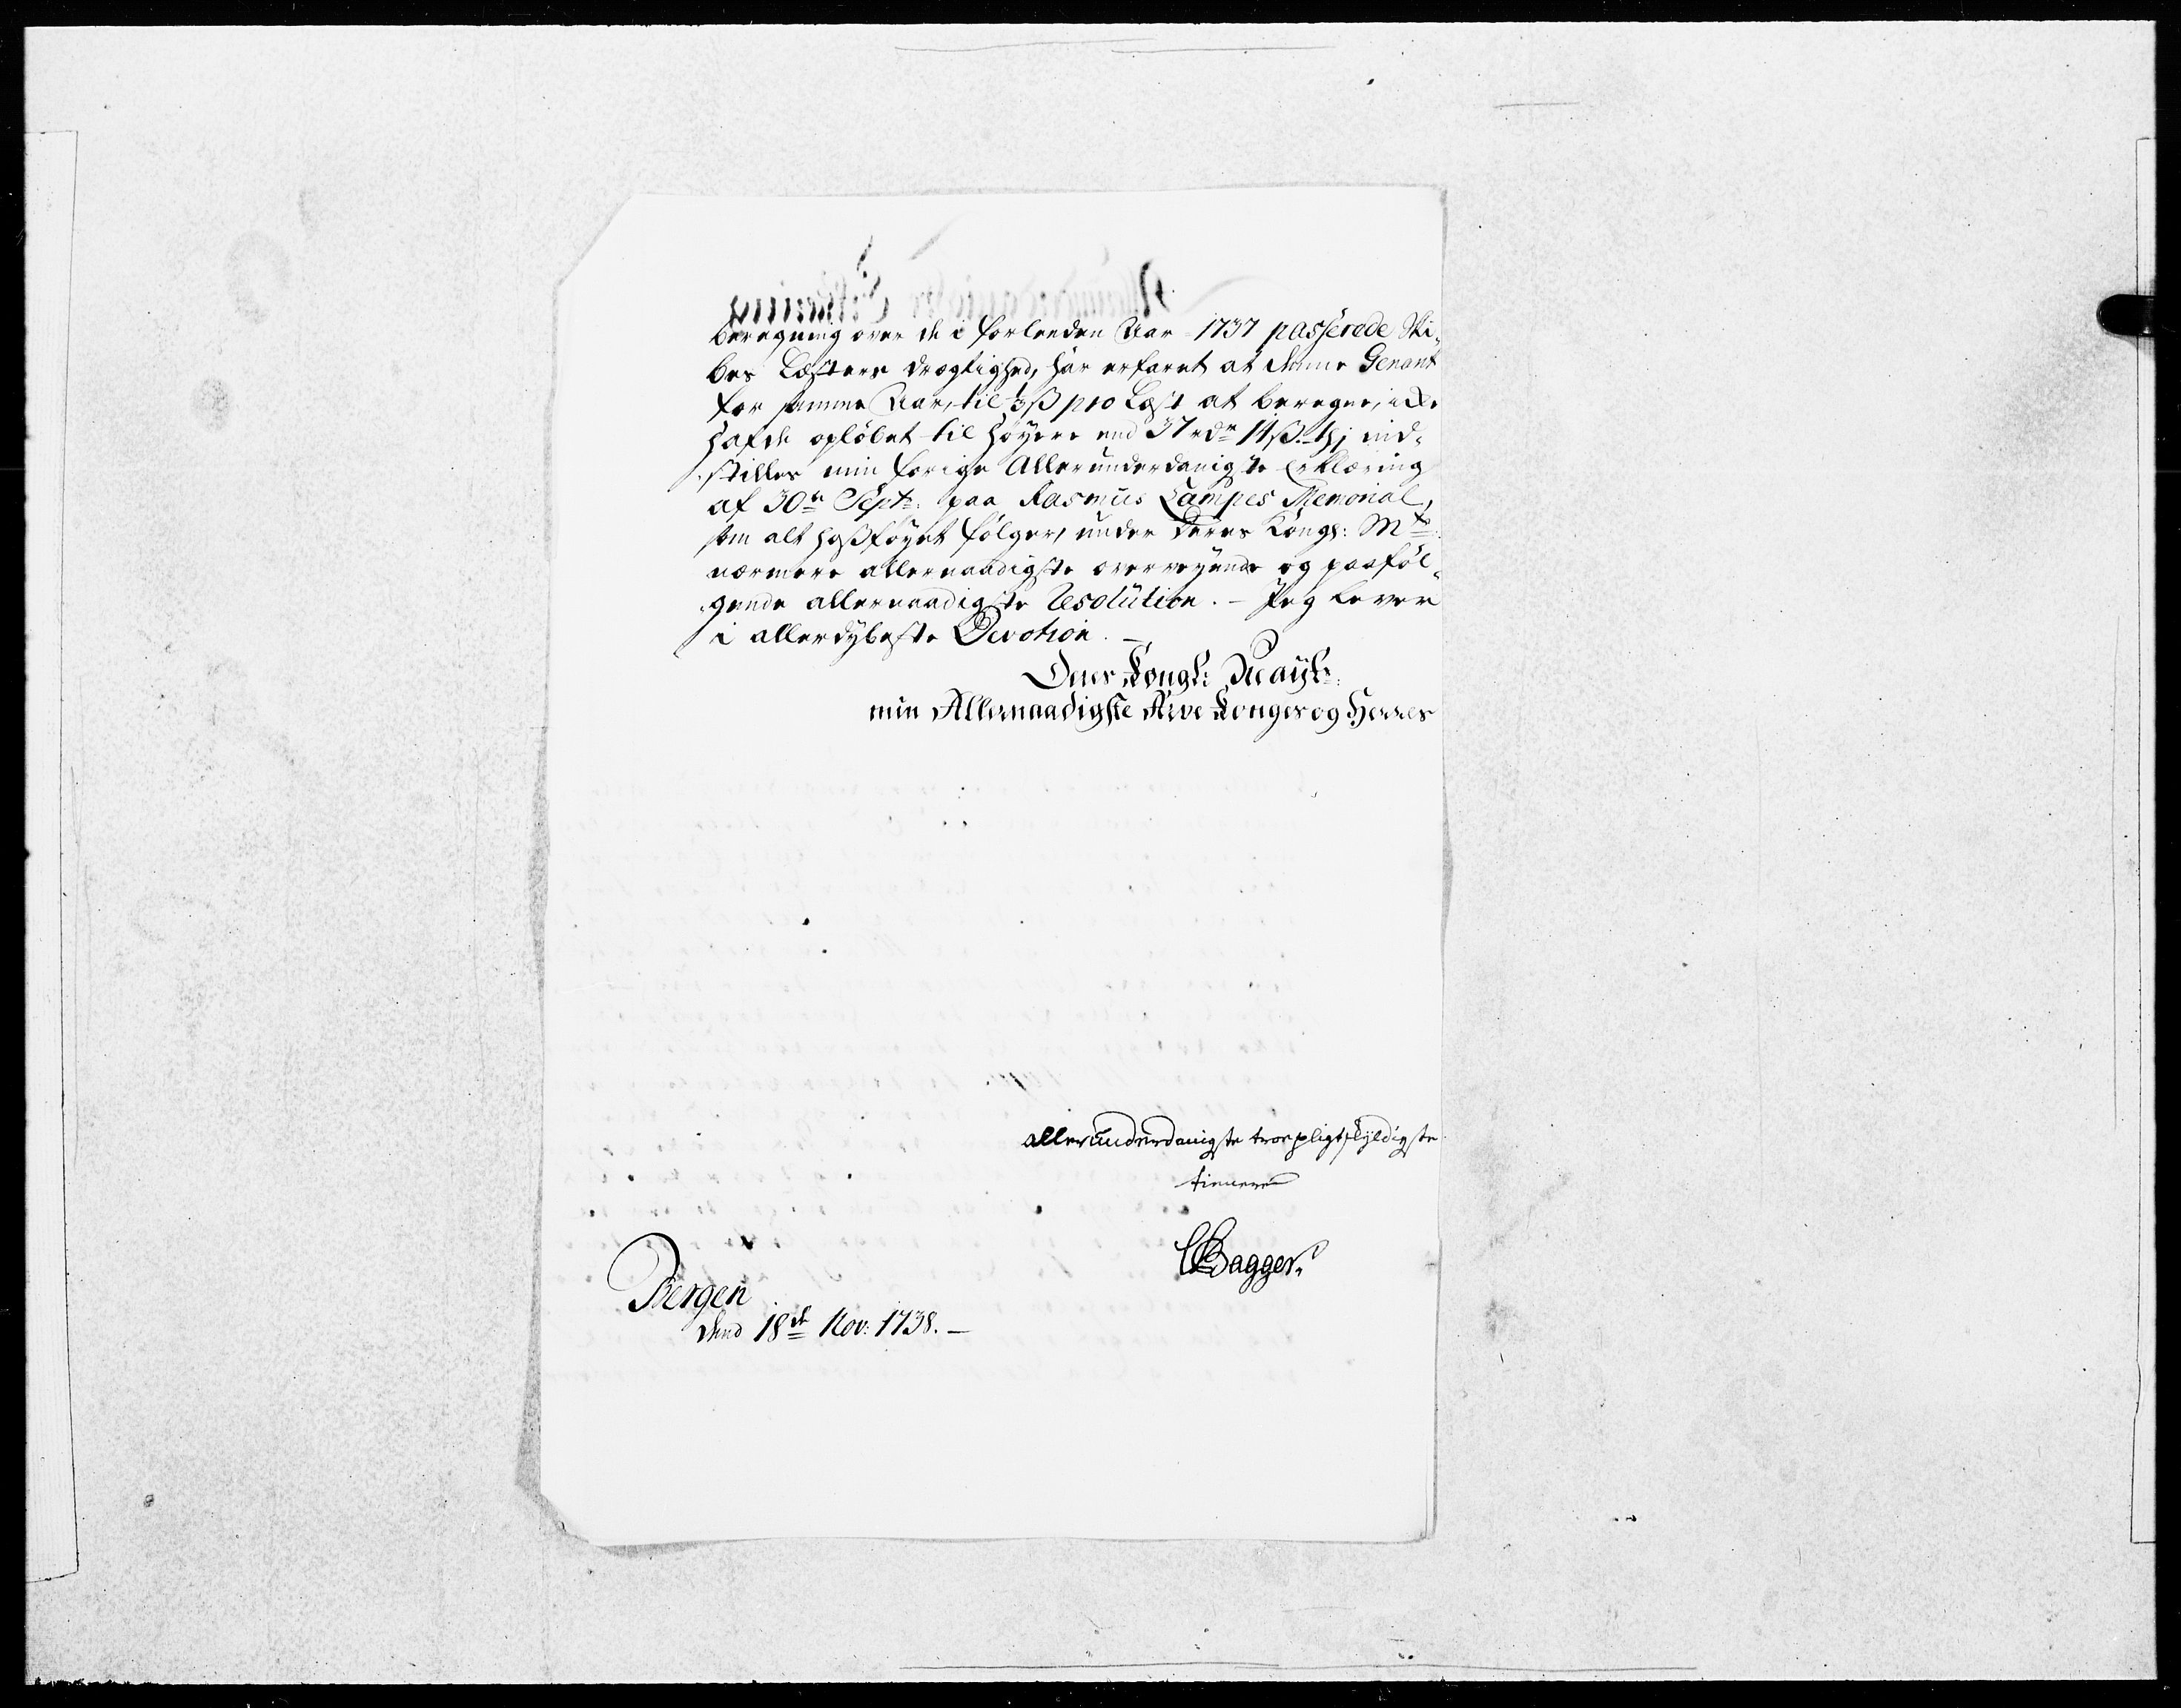 beregning over de i forleeden Aar 1737 passerede Ski-
bes Læsters drægtighed, har erfaret at denne Genant
for samme Aar, til ß pro Læst at beregne, icke
hafde opløbet til høyere end 37 rdr 14 ß. ind-
stilles min forige Allerunderdanigste erklæring
af 30te Septr: paa Rasmus Lampes Memorial,
som alt hosføyet følger, under Deres Kongl: Mts:
nærmere allernaadigste overveyende og paaføl-
gende allernaadigste Resolution. – Jeg lever
i allerdybeste Devotion. –
Deres Kongl: Mayts:
min Allernaadigste Arve Konges og Herres
allerunderdanigste troepligtskyldigste
tienere
Bagger
Bergen
dend 18de Nov: 1738. –